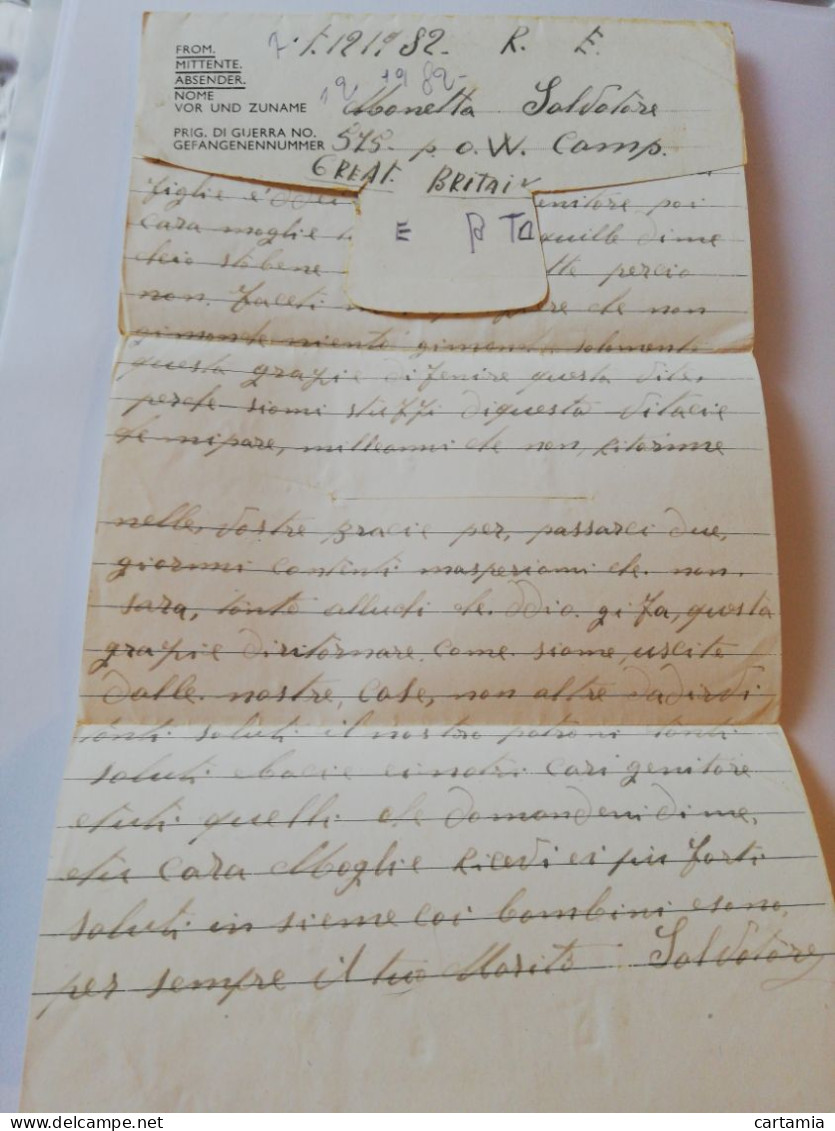 FROM.
MITTENTE.
ABSENDER.
NOME
VOR UND ZUNAME
PRIG. DI GUERRA NO.
GEFANGENENNUMMER
1219182- R. E.
12 1982-
Monetta Salvatore
575- p. o. W. Camp.
GREAT. BRITAIN
E B
figlie genitore poi
cara moglie dime
chio stobene percio
non. faceti che non
gimanda nienti gimanda solamenti
questa grazie difenire questa vita,
perche siami stuffi diquesta vitacie
che nipare, milleanni che non, ritorime
nelle, vostre bracie per, passarci due,
giornni contenti masperiami che. non.
sara, tanto alludi che. ddio. gifa, questa
grazie diritornare. come. siame, uscite
dalle. nostre, case, non altro dadirvi
tanti saluti il nostro patroni tanti
saluti ebacie einostri cari genitore
etuti quelli che domandeni dime,
etu cara Moglie ricevi ei piu forti
saluti in sieme coi bambini esono,
per sempre il tuo Marito Salvatore
www.delcampe.net
cartamia